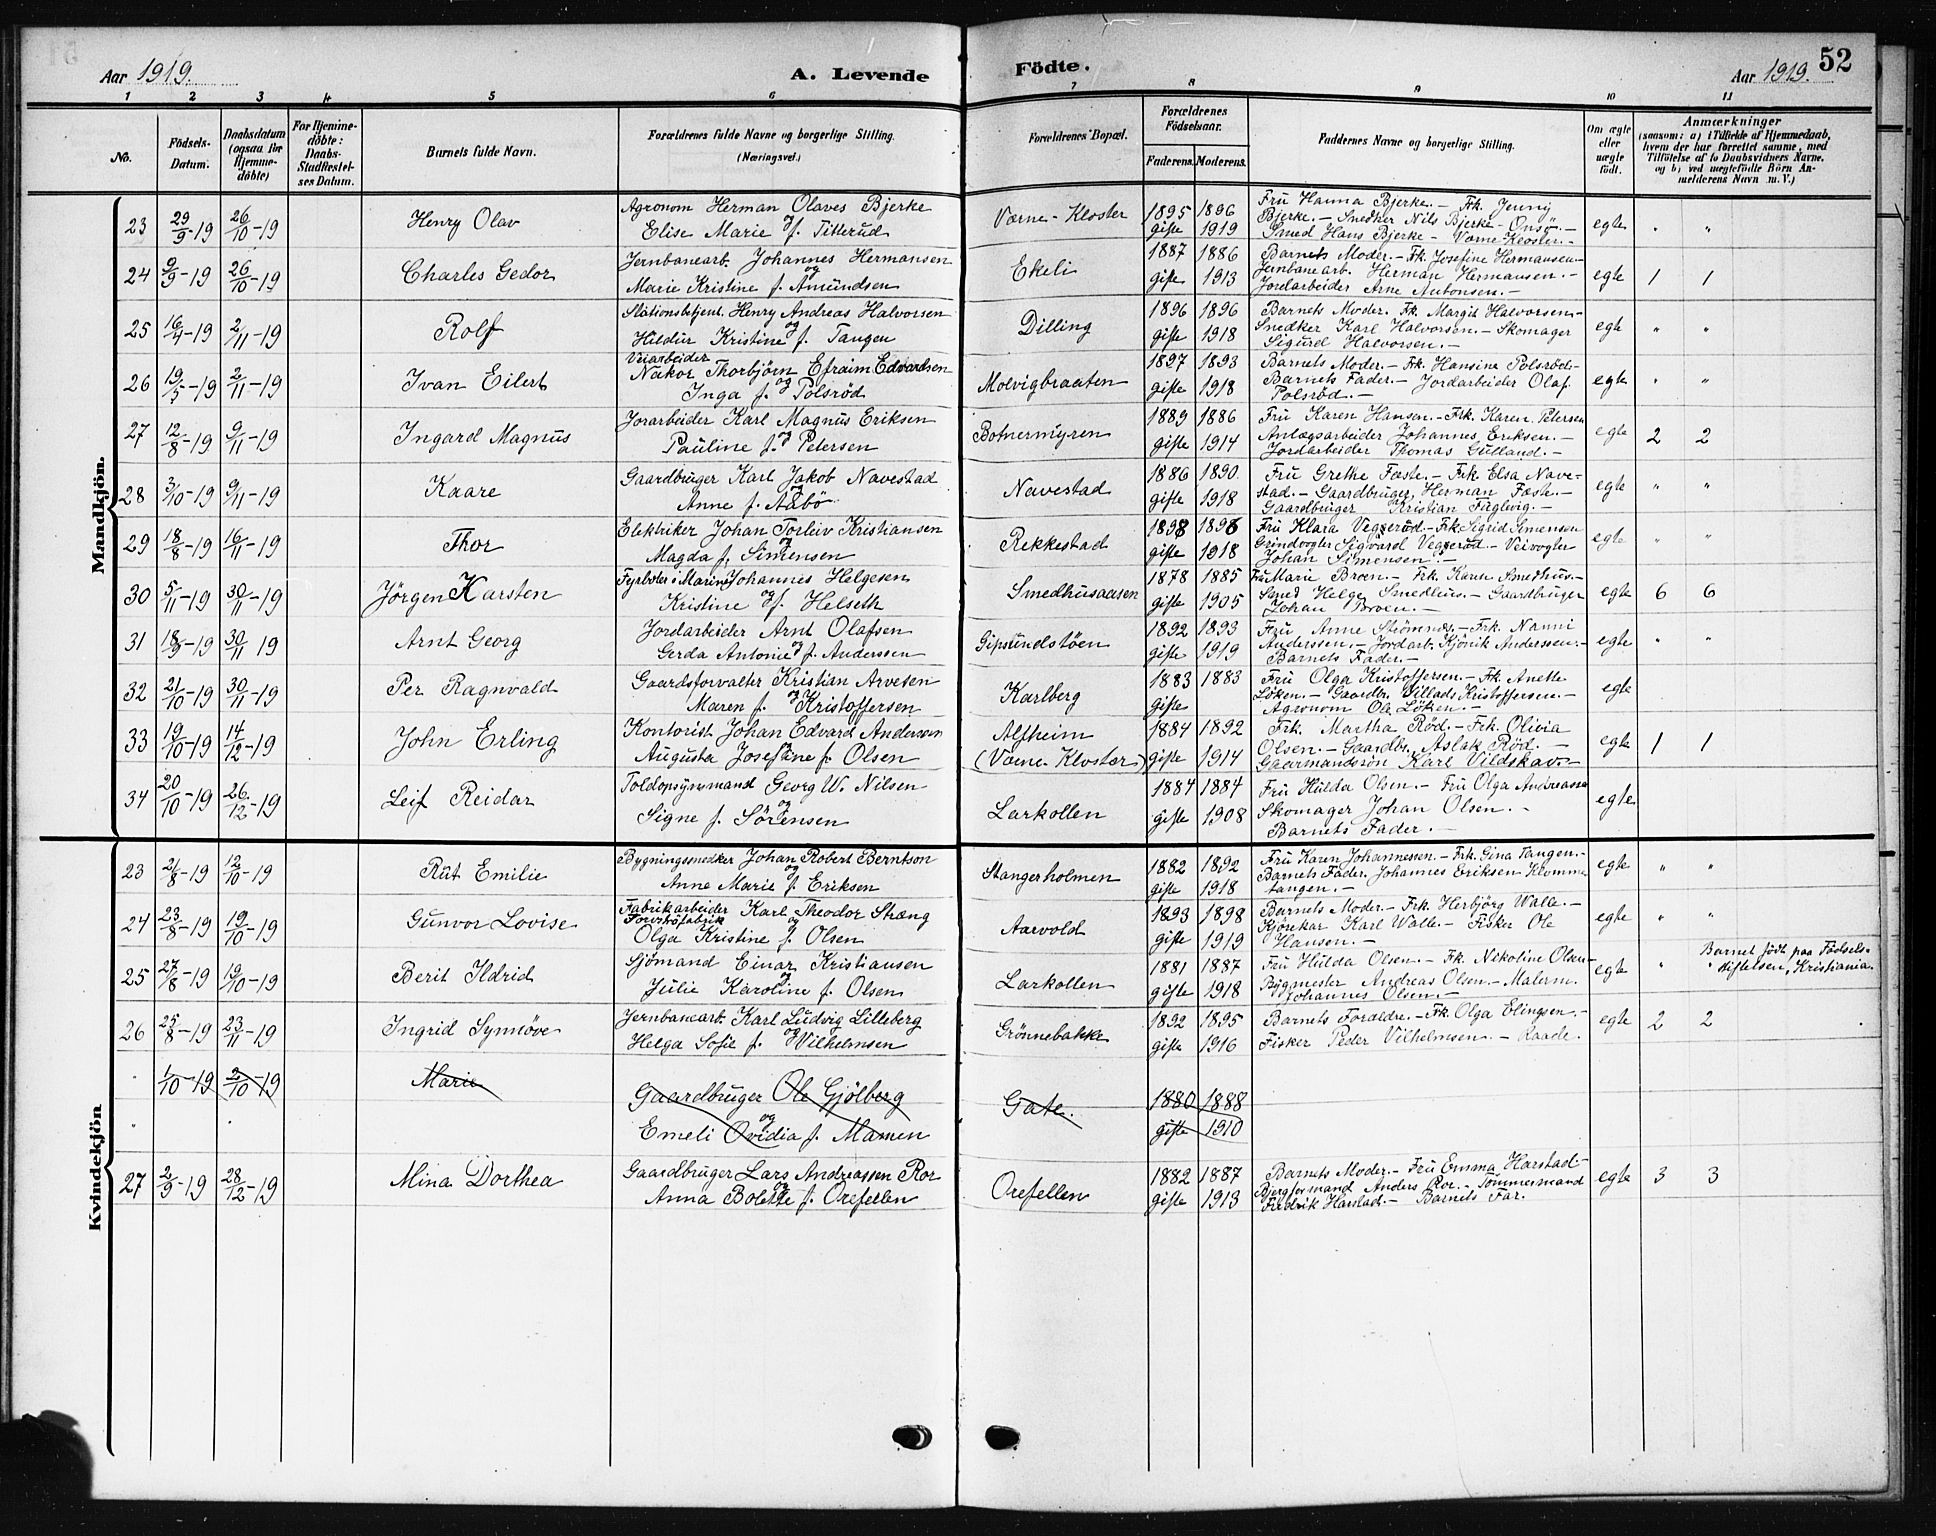 Aar 1919.
A. Levende
Födte.
Aar 1919.
52
1 2 3 4 5 6 7 8 9 10 11
No.
Födsels-Datum.
Daabsdatum (ogsaa for Hjemme-döbte)
For Hjemme-döbte: Daabs-Stadfæstel-ses Datum.
Barnets fulde Navn.
Forældrenes fulde Navne og borgerlige Stilling.
(Næringsvei.)
Forældrenes Bopæl.
Forældrenes Födselsaar.
Faderens. Moderens.
Faddernes Navne og borgerlige Stilling.
Om ægte eller uægte født.
Anmærkninger
(saasom: a) i Tilfælde af Hjemmedaab, hvem der har forrettet samme, med Tilföielse af to Daabsvidners Navne, og b) ved uægtefödte Börn An-melderens Navn m. V.)
Mandkjön.
23 29/9-19 26/10-19 Henry Olav
Agronom Herman Olaves Bjerke
og
Elise Marie f. Titterud
Værne-Kloster
1895 1896
gifte 1919
Fru Hanna Bjerke.- Frk. Jenny
Bjerke.- Snedker Nils Bjerke-Onsö.-
Smed Hans Bjerke- Værne Kloster.-
egte " "
24 9/9-19 26/10-19 Charles Gedor
Jernbanearb. Johannes Hermansen
og
Marie Kristine f. Amundsen
Ekeli
1887 1886
gifte 1913
Barnets Moder.- Frk. Josefine Hermansen-
Jernbanearb. Herman Hermansen.-
Jordarbeider Arne Antonsen.-
egte 1 1
25 16/4-19 2/11-19 Rolf
Stationsbetjent. Henry Andreas Halvorsen
og
Hildur Kristine f. Tangen
Dilling
1896 1896
gifte 1918
Barnets Moder. Frk. Margit Halvorsen.-
Snedker Karl Halvorsen.- Skomager
Sigurd Halvorsen.-
egte " "
26 19/5-19 2/11-19 Ivan Eilert
Veiarbeider
Nakor Thorbjörn Efraim Edvardsen
og
Inga f. Polsröd
Molvigbraaten
1897 1893
gifte 1918
Barnets Moder.- Frk. Hansine Polsröd.-
Barnets Fader.- Jordarbeider Olaf
Polsröd.-
egte " "
27 12/8-19 9/11-19 Ingard Magnus
Jorarbeider Karl Magnus Eriksen
og
Pauline f. Petersen
Botnermyren
1889 1886
gifte 1914
Fru Karen Hansen.- Frk. Karen Petersen
Anlægsarbeider Johannes Eriksen.-
Jordarbeider Thomas Gulland.-
egte 2 2
28 3/10-19 9/11-19 Kaare
Gaardbruger Karl Jakob Navestad
og
Anne f. Aabö
Navestad
1886 1890.
gifte 1918
Fru Grethe Fæste.- Frk. Elsa Nave-
stad.- Gaardbruger Herman Fæste.-
Gaardbruger Kristian Fuglevig.-
egte " "
29 18/8-19 16/11-19 Thor
Elektriker Johan Torleiv Kristiansen
og
Magda f. Simensen
Rekkestad
1898 1896
gifte 1918
Fru Klara Vegserud.- Frk. Sigrid Simensen
Grindvogter Sigvard Vegserud- Veivogter
Johan Simensen.-
egte " "
30 5/11-19 30/11-19 Jörgen Karsten
Fyrböter i Marine Johannes Helgesen
og
Kristine f. Helseth
Smedhusaasen
1878 1885
gifte 1905
Fru Marie Broen.- Frk. Karen Smedhus.-
Smed Helge Smedhus.- Gaardbruger
Johan Broen.-
egte 6 6
31 18/9-19 30/11 19 Arnt Georg
Jordarbeider Arnt Olafsen
og
Gerda Antonie f. Anderssen
Gipsundstöen
1892 1893
gifte 1919
Fru Anne Strömnes.- Frk. Nanni
Anderssen.- Jordarb. Kjönik Anderssen.-
Barnets Fader.-
egte " "
32 21/10-19 30/11-19 Per Ragnvald
Gaardsforvalter Kristian Arvesen
og
Maren f. Kristoffersen
Karlberg
1883 1883
gifte
Fru Olga Kristoffersen.- Frk. Anette
Löken.- Gaardbr. Sillads Kristoffersen.-
Agronom Ole Löken.-
egte
33 19/10-19 14/12-19 John Erling
Kontorist Johan Edvard Andersen
og
Augusta Josefine f. Olsen
Alfheim
(Værne-Kloster)
1884 1892
gifte 1914
Frk. Martha Röd.- Frk. Olivia
Olsen.- Gaardbr. Aslak Röd.-
Gaarmandssön Karl Vildskav.-
egte 1 1
34 20/10-19 26/12-19 Leif Reidar
Toldopsynsmand Georg W. Nilsen
og
Signe f. Sörensen
Larkollen
1884 1884
gifte 1908
Fru Hulda Olsen.- Fru Olga Andreassen
Skomager Johan Olsen.-
Barnets Fader.-
egte
Kvindekjön
23 21/8-19 12/10-19 Rut Emilie
Bygningssnedker Johan Robert Berntson
og
Anne Marie f. Eriksen
Stangerholmen
1882 1892
gifte 1918
Fru Karen Johannessen.- Frk. Gina Tangen.-
Barnets Fader. Johannes Eriksen Klomme
tangen.-
egte " "
24 23/8-19 19/10-19 Gunvor Lovise
Fabrikarbeider Karl Theodor Stræng
Torvströfabrik og
Olga Kristine f. Olsen
Aarvold
1893 1898
gifte 1919
Barnets Moder- Frk. Herbjörg Walle.-
Kjörekar Karl Walle.- Fisker Ole
Hansen.-
egte " "
25 27/8-19 19/10-19 Berit Ildrid
Sjömand Einar Kristiansen
og
Julie Karoline f. Olsen
Larkollen
1881 1887
gifte 1918
Fru Hulda Olsen.- Fk. Nikoline Olsen-
Bygmester Andreas Olsen.- Malerm.
Johannes Olsen.-
egte " "
Barnet född paa Födsels-
stiftelsen, Kristiania.
26 25/8-19 23/11-19 Ingrid Synnöve
Jernbanearb. Karl Ludvig Lilleberg
og
Helga Sofie f. Vilhelmsen
Grönnebakke
1892 1895
gifte 1916
Barnets Forældre.- Frk. Olga Elingsen.-
Fisker Peder Vilhelmsen.- Raade.
egte 2 2
" 1/10-19 2/10-19 Marie
Gaardbruger Ole Gjölberg
og
Emeli Ovidia f. Mamen
Gate.
1880 1888
gifte 1910
27 2/9-19 28/12-19 Mina Dorthea
Gaardbruger Lars Andreassen Ror
og
Anna Bolette f. Orefellen
Orefellen
1882 1887
gifte 1913
Barnets Moder.- Fru Emma Harstad-
Bjergformand Anders Ror.- Tömmermand
Fredrik Harstad.- Barnets Far.
egte 3 3